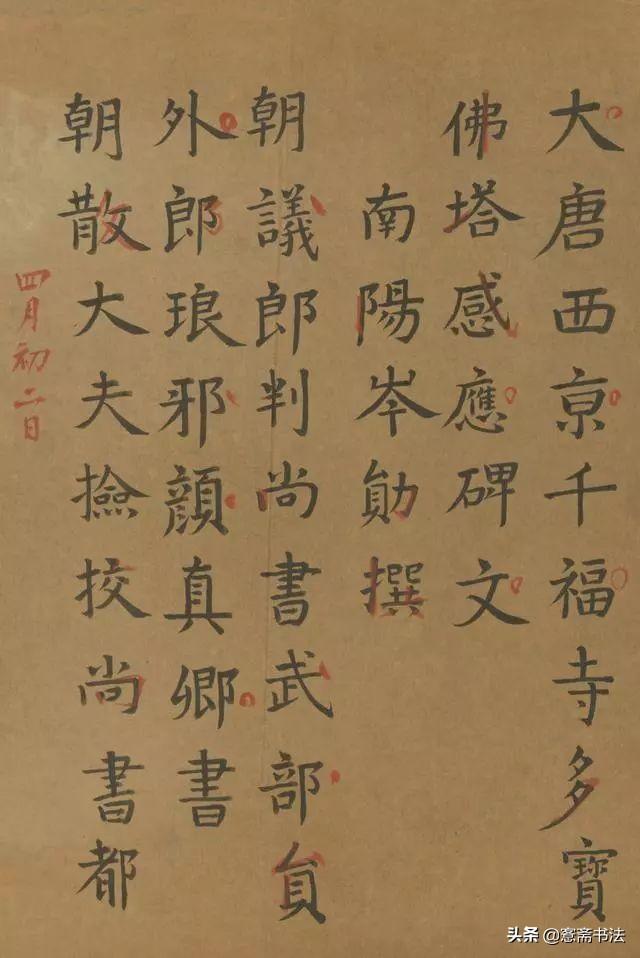 大唐西京千福寺多寶
佛塔感應碑文
南陽岑勛撰
朝議郎判尚書武部員
外郎琅邪顏真卿書
朝散大夫撿挍尚書都
四月初二日
头条 @窓斋书法